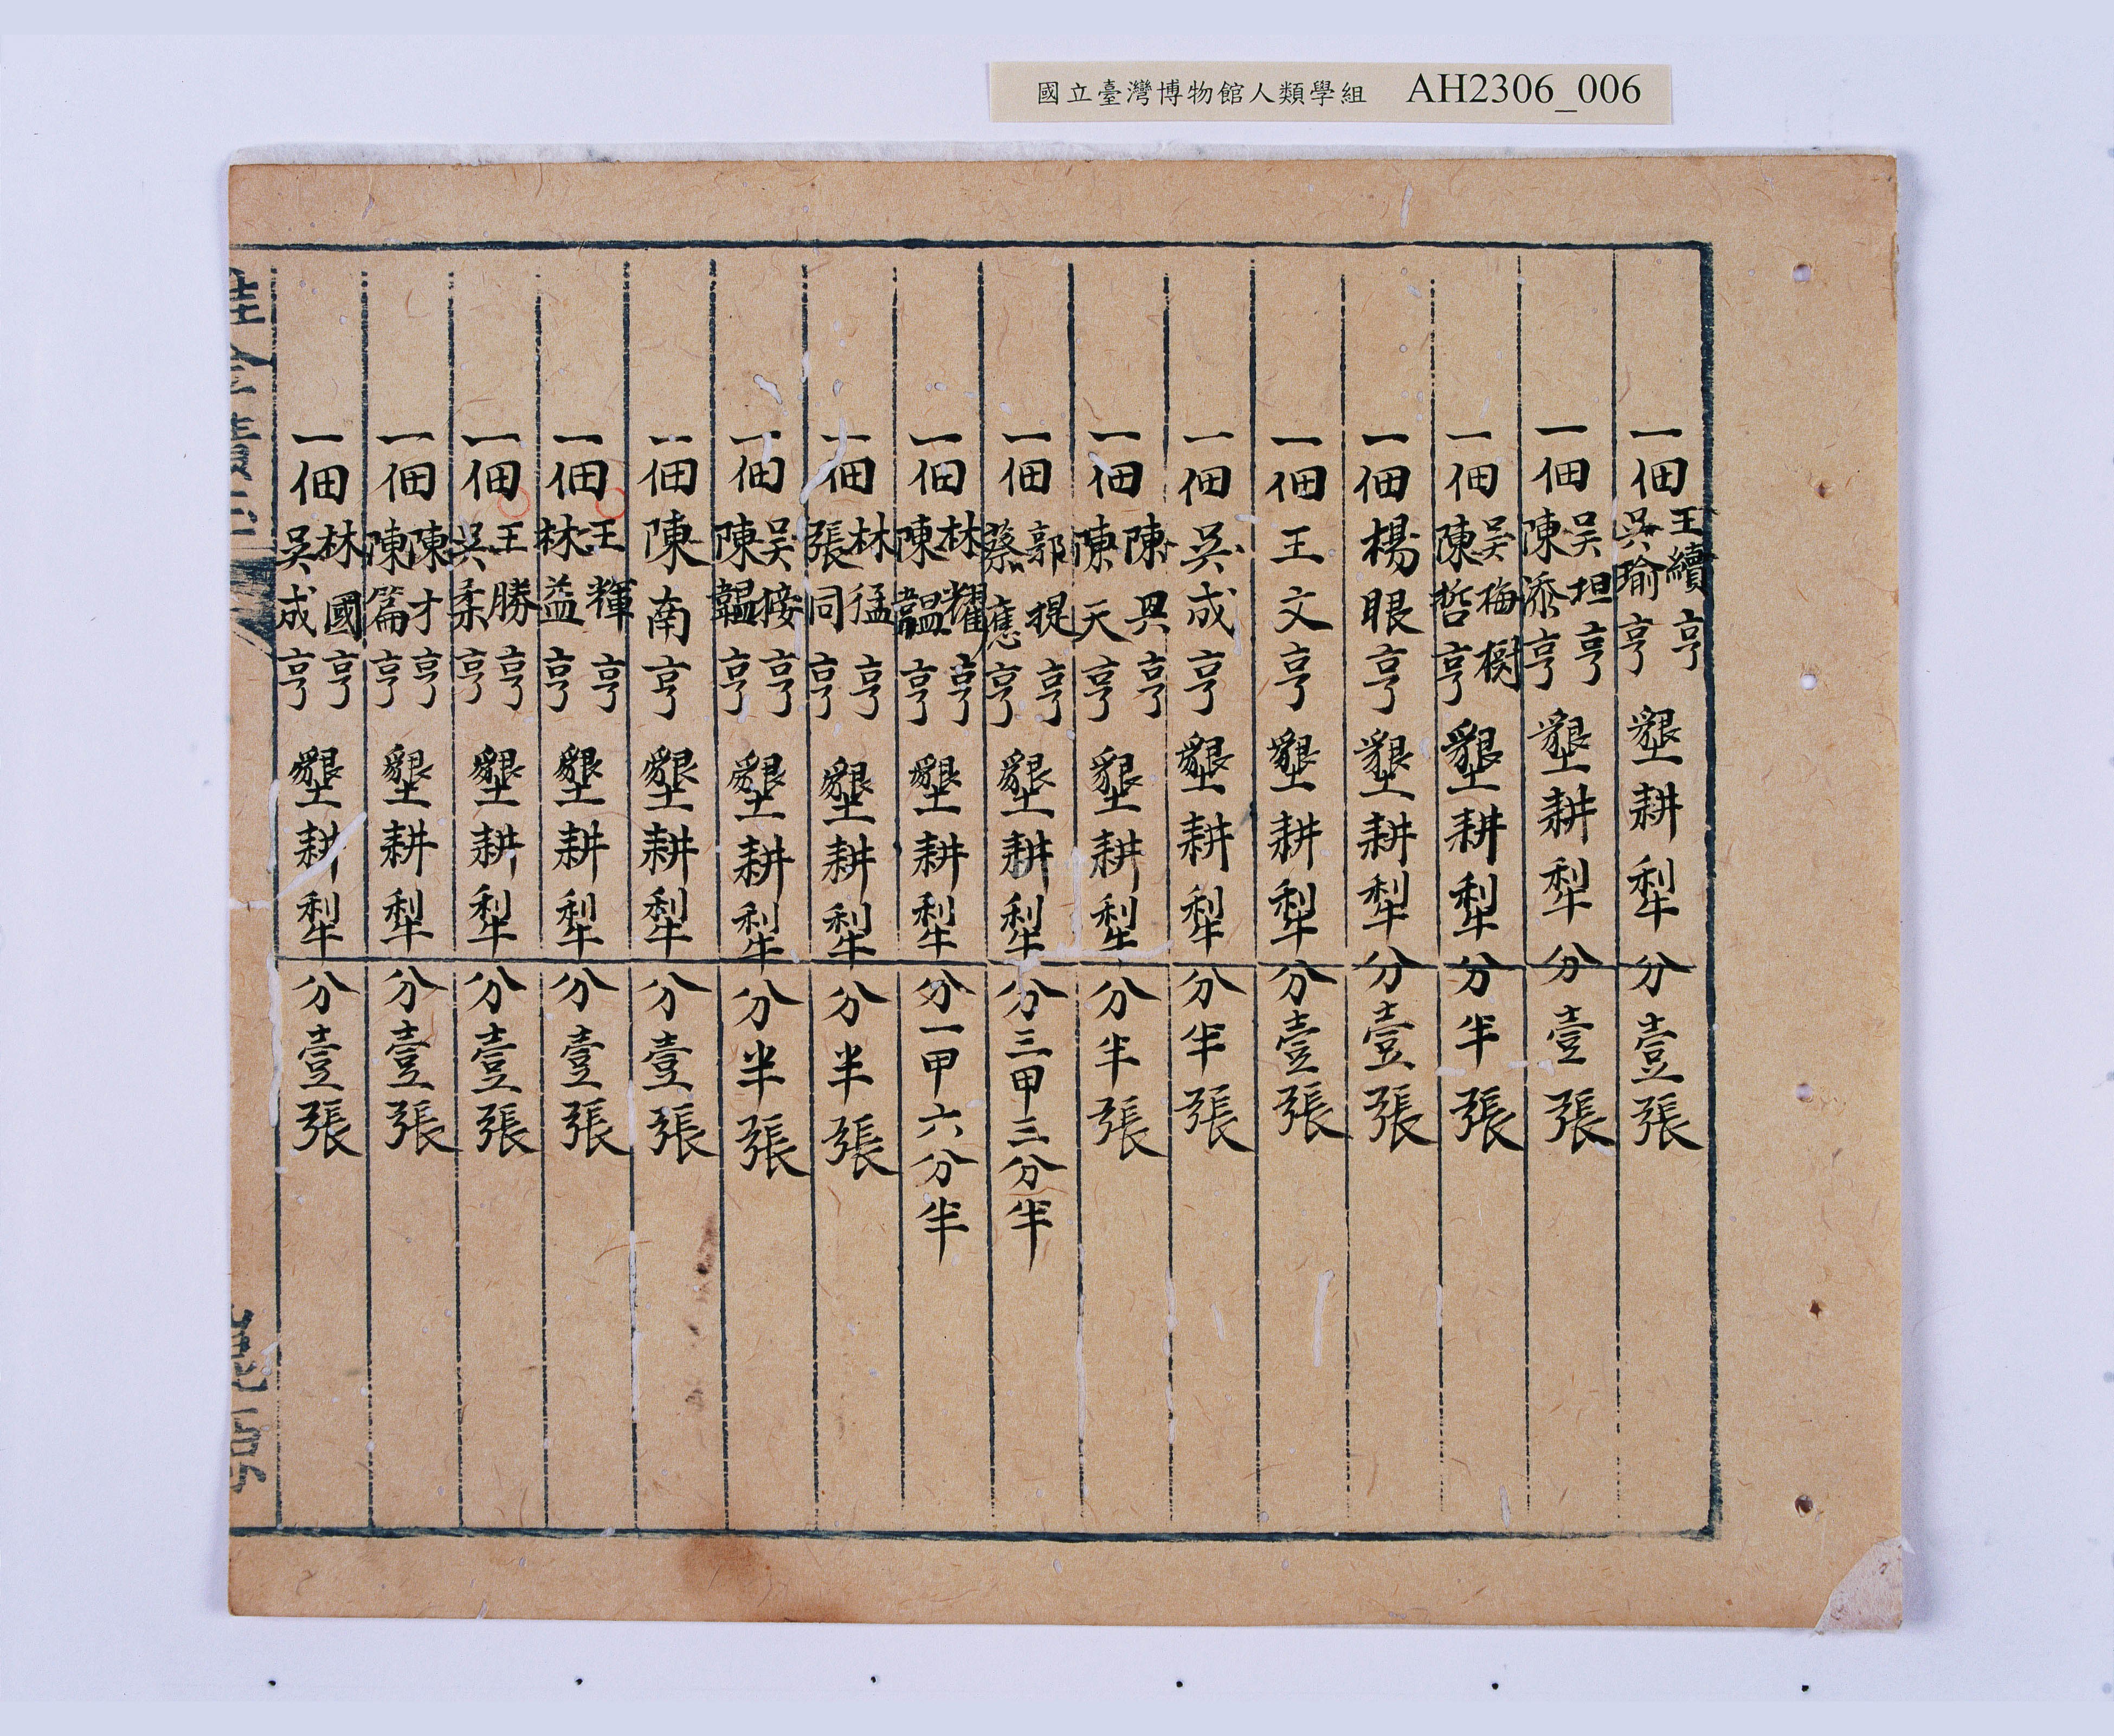 國立臺灣博物館人類學組 AH2306_006
一佃王續亨吳瑜亨墾耕犁分壹張
一佃吳坦亨陳添亨墾耕犁分壹張
一佃吳梅樹陳哲亨墾耕犁分半張
一佃楊眼亨墾耕犁分壹張
一佃王文亨墾耕犁分壹張
一佃吳成亨墾耕犁分半張
一佃陳興亨陳天亨墾耕犁分半張
一佃郭提亨蔡應亨墾耕犁分三甲三分半
一佃林耀亨陳韞亨墾耕犁分一甲六分半
一佃林猛亨張同亨墾耕犁分半張
一佃吳接亨陳韞亨墾耕犁分半張
一佃陳南亨墾耕犁分壹張
一佃王輝亨林益亨墾耕犁分壹張
一佃王勝亨吳柔亨墾耕犁分壹張
一佃陳才亨陳篇亨墾耕犁分壹張
一佃林國亨吳成亨墾耕犁分壹張